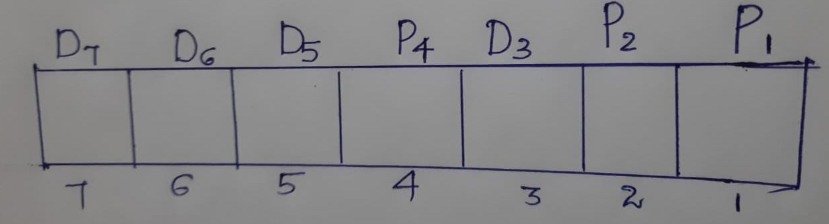 D₇ D₆ D₅ P₄ D₃ P₂ P₁
7 6 5 4 3 2 1